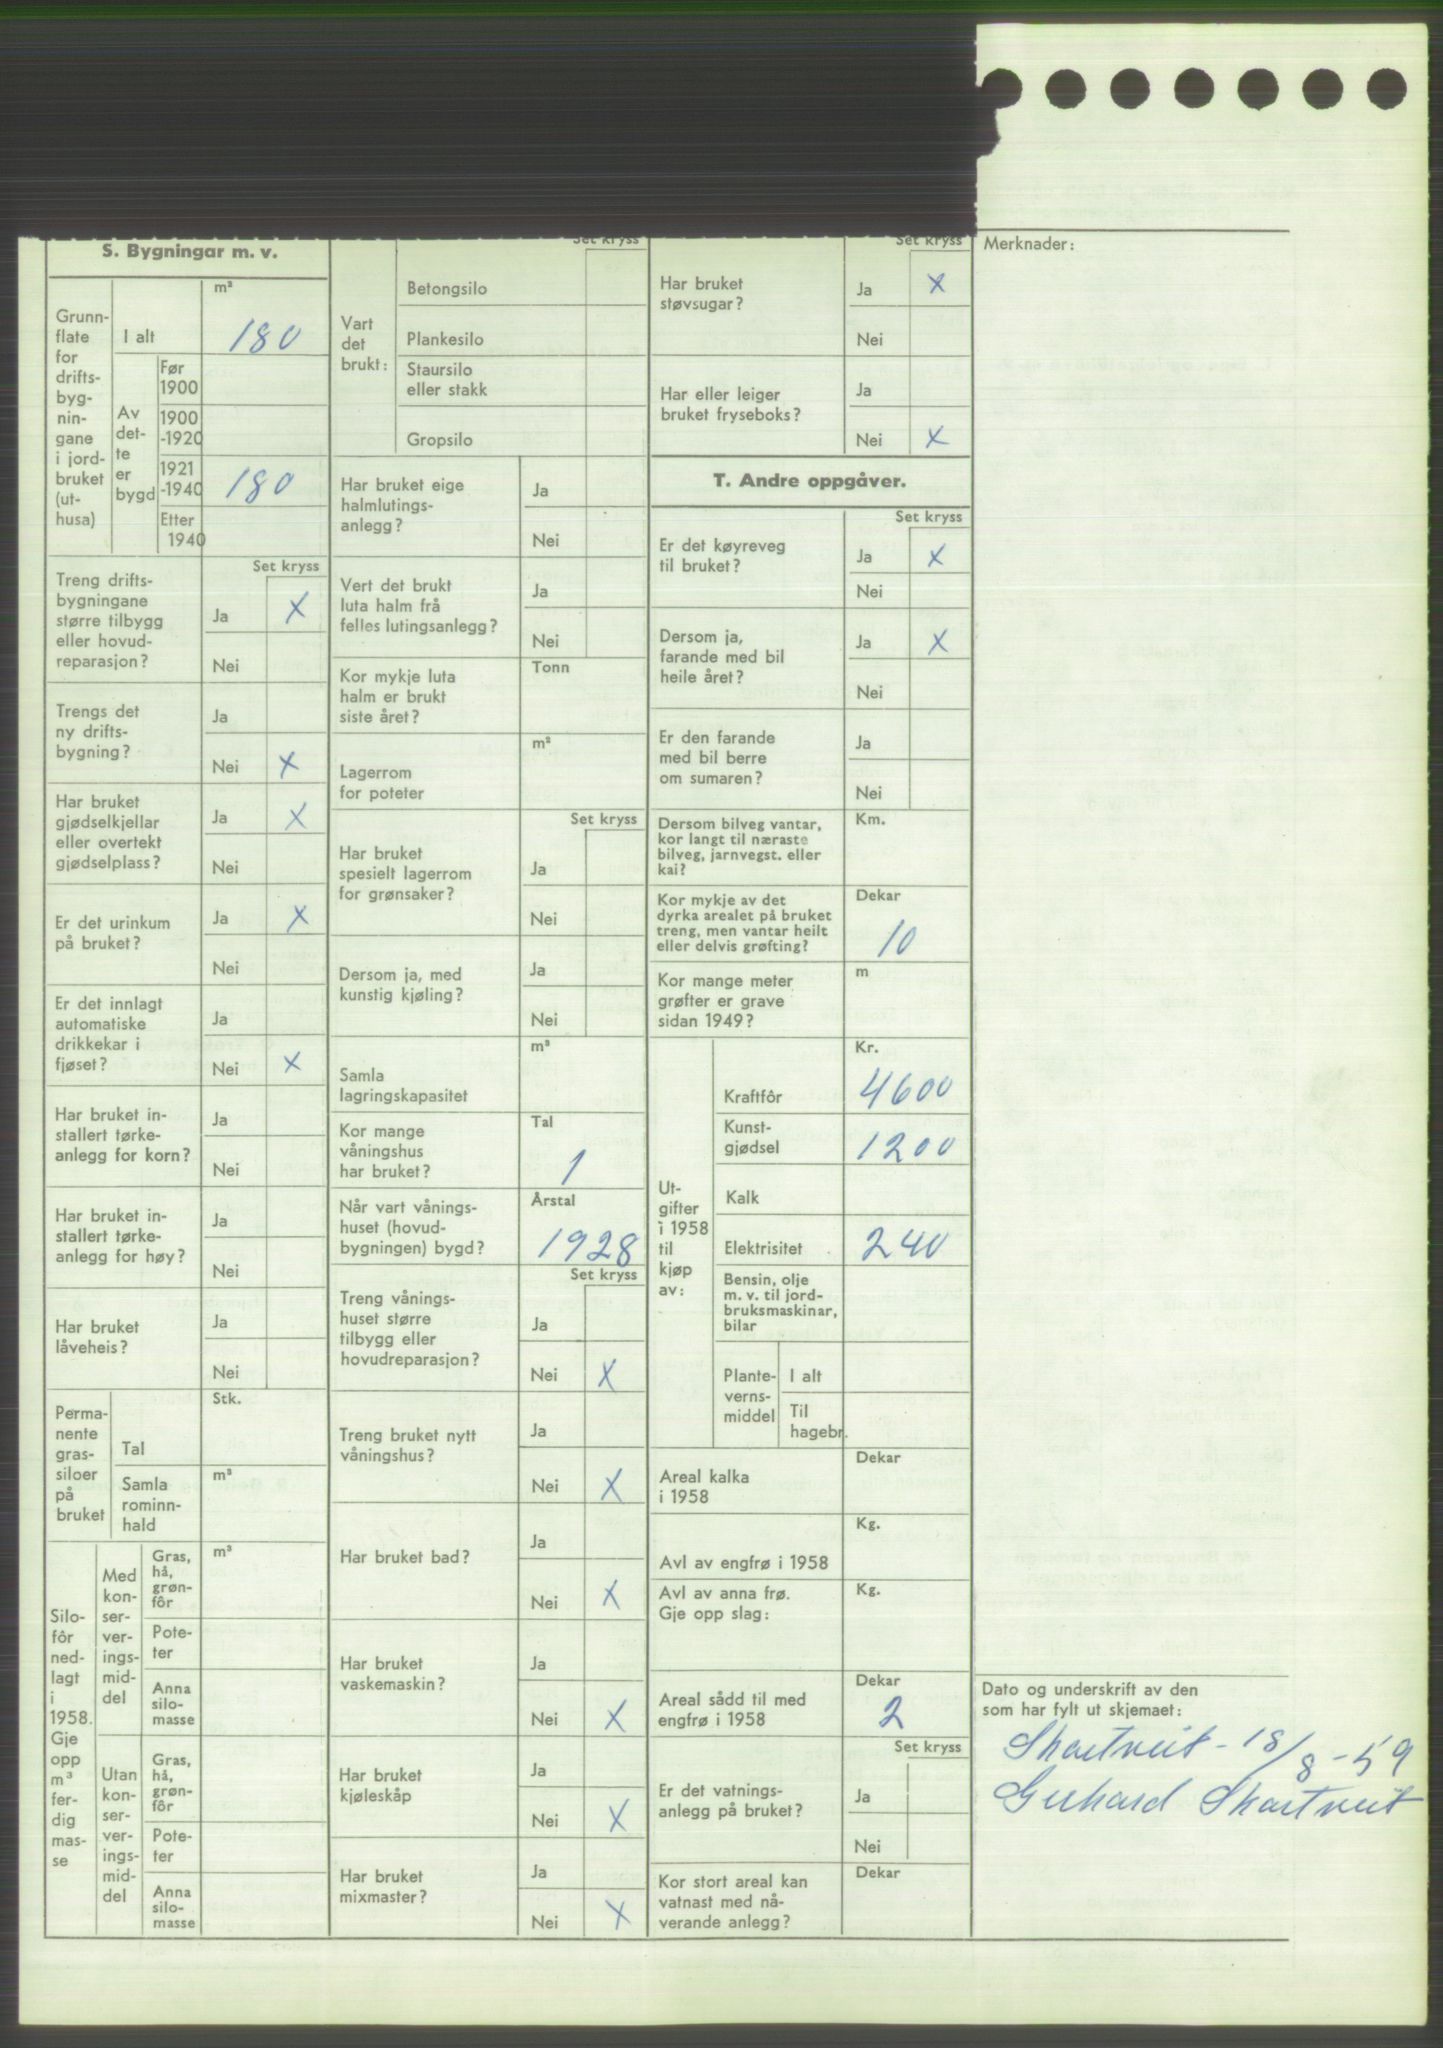 S. Bygningar m. v.
Grunn-
flate
for
drifts-
byg-
nin-
gane
i jord-
bruket
(ut-
husa)
m²
I alt
180
Av
det-
te
er
bygd
Før
1900
1900
-1920
1921
-1940
180
Etter
1940
Set kryss
Treng drifts-
bygningane
større tilbygg
eller hovud-
reparasjon?
Ja X
Nei
Trengs det
ny drifts-
bygning?
Ja
Nei X
Har bruket
gjødselkjellar
eller overtekt
gjødselplass?
Ja X
Nei
Er det urinkum
på bruket?
Ja X
Nei
Er det innlagt
automatiske
drikkekar i
fjøset?
Ja
Nei X
Har bruket in-
stallert tørke-
anlegg for korn?
Ja
Nei
Har bruket in-
stallert tørke-
anlegg for høy?
Ja
Nei
Har bruket
låveheis?
Ja
Nei
Perma-
nente
gras-
siloer
på
bruket
Stk.
Tal
m³
Samla
rominn-
hald
Silo-
fôr
ned-
lagt
i
1958.
Gje
opp
m³
fer-
dig
mas-
se
Med
kon-
ser-
ver-
ings-
mid-
del
m³
Gras,
hå,
grøn-
fôr
Pote-
ter
Anna
silo-
masse
Utan
kon-
ser-
ver-
ings-
mid-
del
Gras,
hå,
grøn-
fôr
Pote-
ter
Anna
silo-
masse
Set kryss
Vart
det
brukt:
Betongsilo
Plankesilo
Staursilo
eller stakk
Gropsilo
Har bruket eige
halmlutings-
anlegg?
Ja
Nei
Vert det brukt
luta halm frå
felles lutingsanlegg?
Ja
Nei
Kor mykje luta
halm er brukt
siste året?
Tonn
Lagerrom
for poteter
m²
Set kryss
Har bruket
spesielt lagerrom
for grønsaker?
Ja
Nei
Dersom ja, med
kunstig kjøling?
Ja
Nei
Samla
lagringskapasitet
m³
Kor mange
våningshus
har bruket?
Tal
1
Når vart vånings-
huset (hovud-
bygningen) bygd?
Årstal
1928
Set kryss
Treng vånings-
huset større
tilbygg eller
hovudreparasjon?
Ja
Nei X
Treng bruket nytt
våningshus?
Ja
Nei X
Har bruket bad?
Ja
Nei X
Har bruket
vaskemaskin?
Ja
Nei X
Har bruket
kjøleskåp
Ja
Nei X
Har bruket
mixmaster?
Ja
Nei X
Set kryss
Har bruket
støvsugar?
Ja X
Nei
Har eller leiger
bruket fryseboks?
Ja
Nei X
T. Andre oppgåver.
Set kryss
Er det køyreveg
til bruket?
Ja X
Nei
Dersom ja,
farande med bil
heile året?
Ja X
Nei
Er den farande
med bil berre
om sumaren?
Ja
Nei
Dersom bilveg vantar,
kor langt til næraste
bilveg, jarnvegst. eller
kai?
Km.
Kor mykje av det
dyrka arealet på bruket
treng, men vantar heilt
eller delvis grøfting?
Dekar
10
Kor mange meter
grøfter er grave
sidan 1949?
m
Ut-
gifter
i 1958
til
kjøp
av:
Kr.
Kraftfôr 4600
Kunst-
gjødsel 1200
Kalk
Elektrisitet 240
Bensin, olje
m. v. til jord-
bruksmaskinar,
bilar
Plante-
verns-
middel
I alt
Til
hagebr.
Areal kalka
i 1958
Dekar
Avl av engfrø i 1958
Kg.
Avl av anna frø.
Gje opp slag:
Kg.
Areal sådd til med
engfrø i 1958
Dekar
2
Set kryss
Er det vatnings-
anlegg på bruket?
Ja
Nei
Kor stort areal kan
vatnast med nå-
verande anlegg?
Dekar
Merknader:
Dato og underskrift av den
som har fylt ut skjemaet:
Skartveit - 18/8 - 59
Gerhard Skartveit